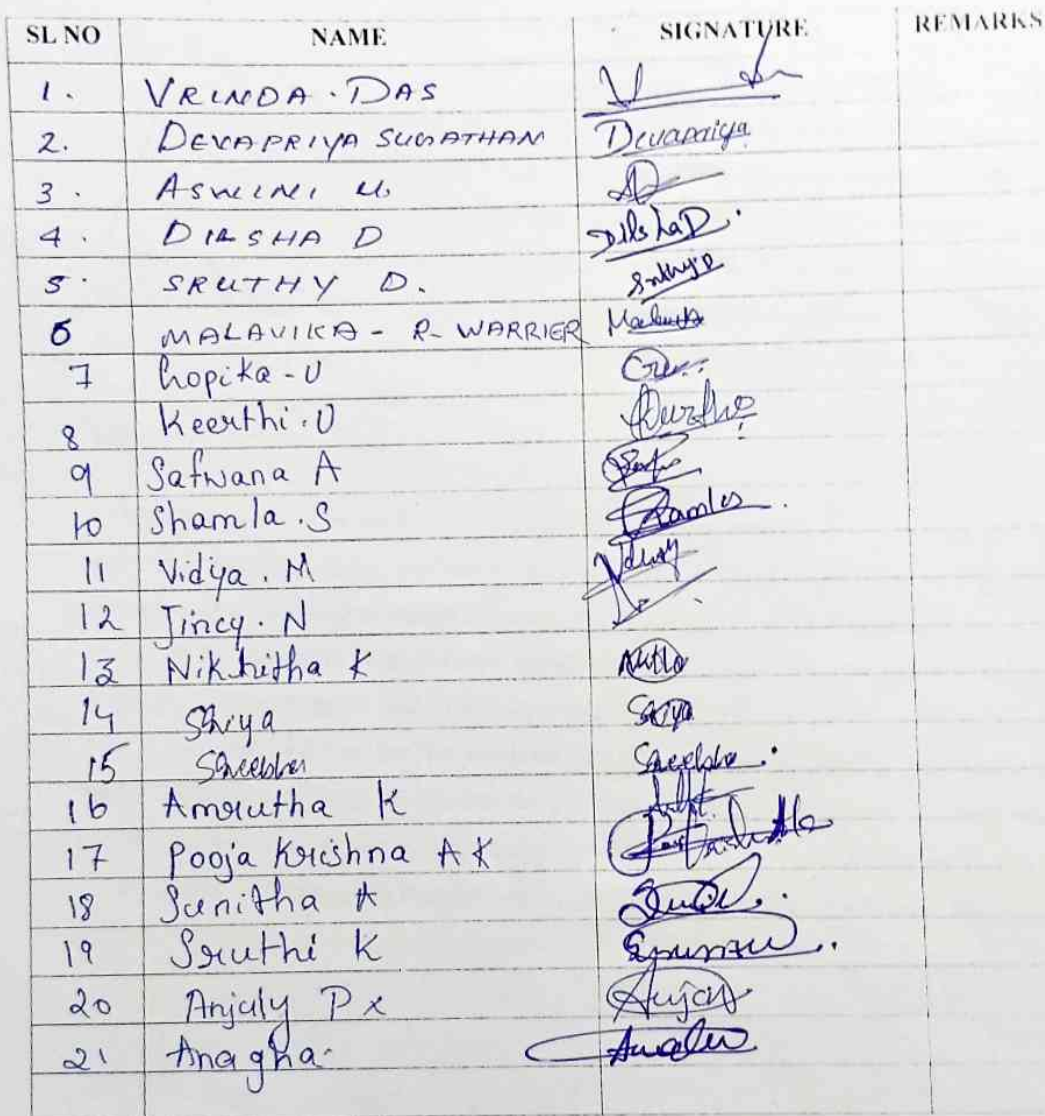 SL NO NAME SIGNATURE REMARKS
1. VRINDA. DAS
2. DEVAPRIYA SUGATHAN Devapriya
3. ASWINI U.
4. DILSHA D Dilsha D.
5. SRUTHY D. Sruthy D
6 MALAVIKA - R- WARRIER Malavika
7 Gopika - U
8 Keerthi. U Keerthi
9 Safwana A
10 Shamla. S Shamla.
11 Vidya. M Vidya
12 Jincy. N
13 Nikhitha K
14 Shiya Shiya
15 Sheebha Sheebha.
16 Amrutha K
17 Pooja Krishna A K
18 Sunitha A
19 Sruthi K
20 Anjaly P K Anjaly
21 Anagha.